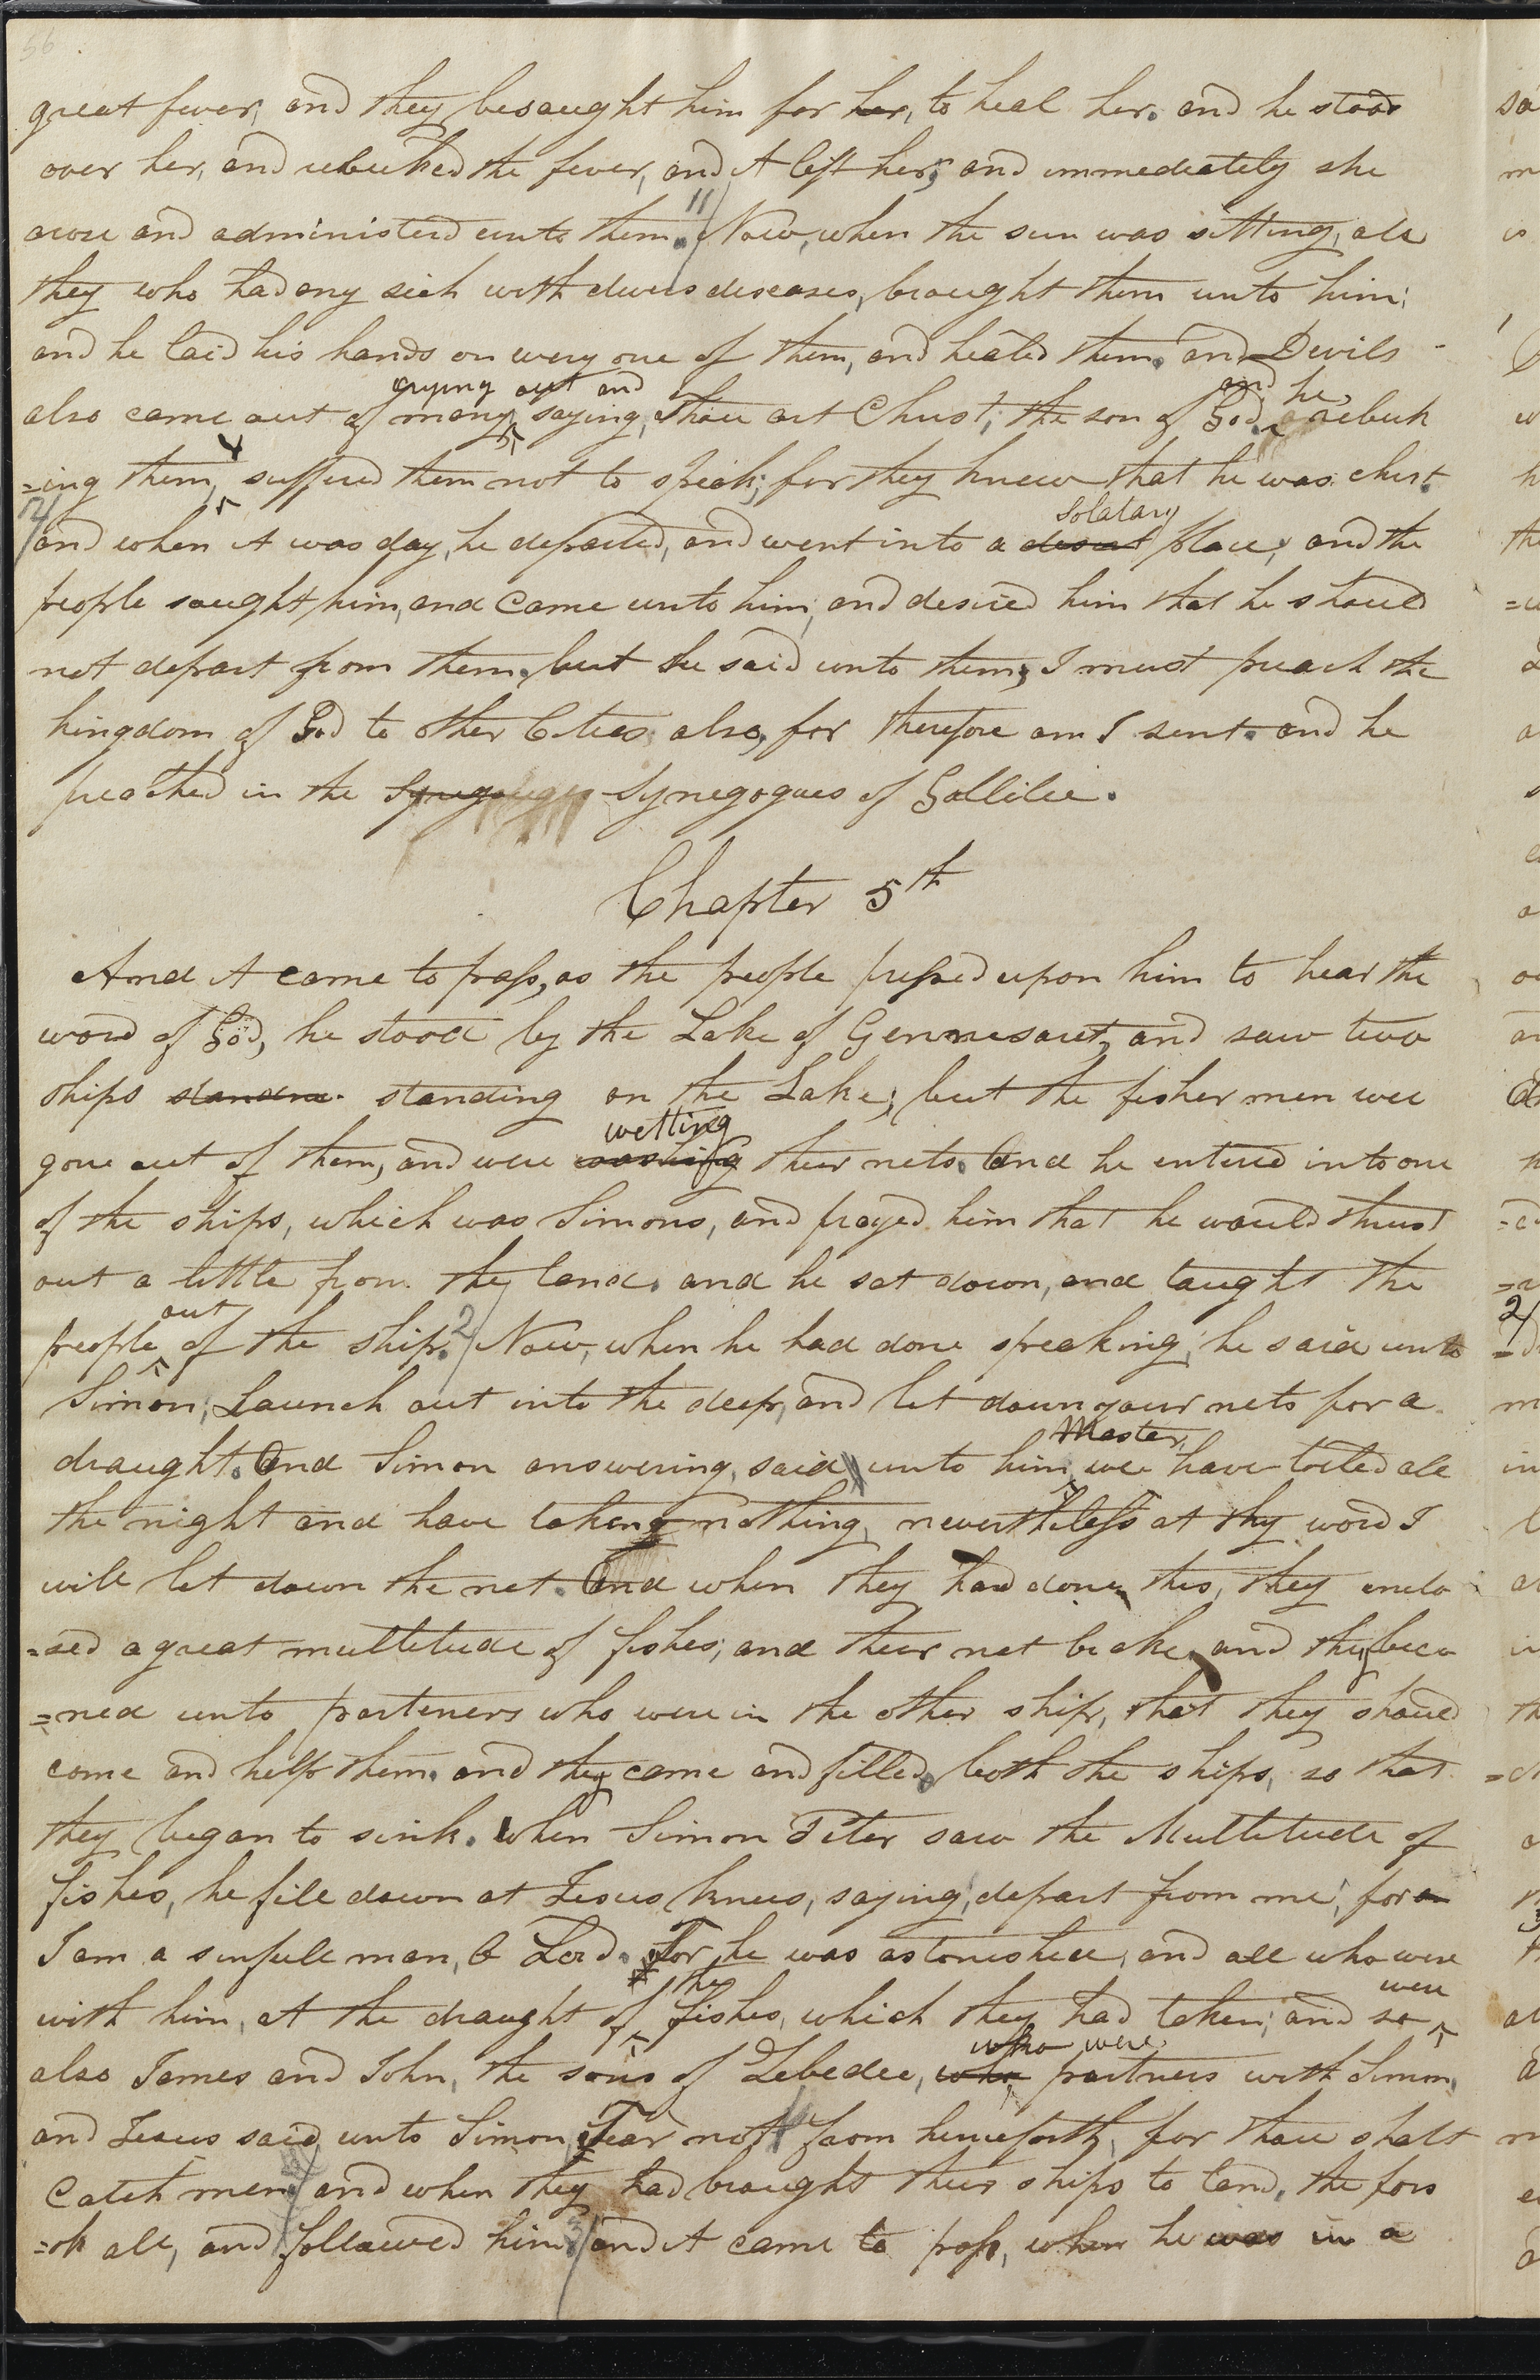 56
great fever, and they besought him for her, to heal her. and he stood
over her, and rebuked the fever, and it left her; and immediately she
arose and administerd unto them. 11/ Now, when the sun was sitting, all
they who had any sick with divers diseases, braught them unto him;
and he laid his hands on every one of them, and healed them. and Devils
also came out of many, crying out and saying, Thou art Christ, the son of God, and he, rebuk
=ing them, & suffered them not to speak; for they knew that he was christ.
12/ and when it was day, he departed, and went into a desert solatary place; and the
people saught him, and came unto him, and desired him that he should
not depart from them. but he said unto them, I must preach the
kingdom of God to other Cities also, for therefore am I sent. and he
preached in the Synegogues of Gallilee.
Chapter 5th
And it came to pass, as the people pressed upon him to hear the
word of God, he stood by the Lake of Gennesaret, and saw two
ships standing on the Lake; but the fisher men were
gone out of them, and were washing wetting their nets. And he entered into one
of the ships, which was Simons, and prayed him that he would thrust
out a little from the land. and he sat down, and taught the
people out of the ship. 2/ Now, when he had done speaking, he said unto
Simon, Launch out into the deep, and let down your nets for a
draught. And Simon answering, said unto him, Master, we have toiled all
the night and have taken nothing, nevertheless at thy word I
will let down the net. And when they had done this, they enclo
=sed a great multitude of fishes; and their net brake, and they beca
=ned unto parteners who were in the other ship, that they should
come and help them. and they came and filled both the ships, so that
they began to sink. When Simon Peter saw the Multitude of
fishes, he fell down at Jesus knees, saying, depart from me, for
I am a sinfull man, O Lord. For he was astonished, and all who were
with him, at the draught of the fishes, which they had taken; and so were
also James and John, the sons of Zebedee, who who were partners with Simon,
and Jesus said unto Simon, Fear not from henceforth, for thou shalt
Catch men, and when they had braught their ships to land, the fors
=ok all, and followed him, 3/ and it came to pass, when he was in a